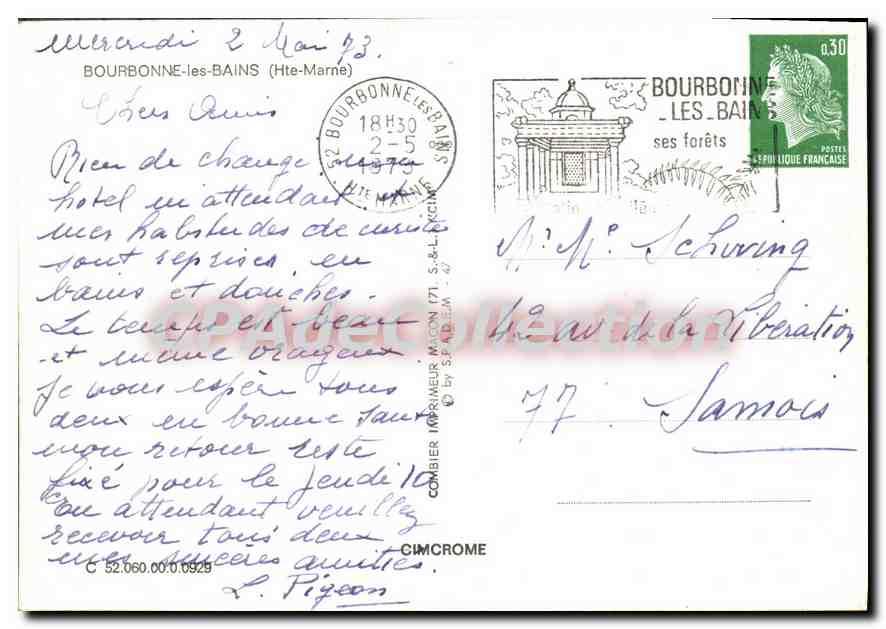 Mercredi 2 Mai 73.
BOURBONNE-les-BAINS (Hte-Marne)
Chers Amis
Rien de change mon
hotel m'attendait
mes habitudes de curiste
sont reprises en
bains et douches.
Le temps est beau
et même orageux.
Je vous espère tous
deux en bonne santé
mon retour reste
fixé pour le jeudi 10
en attendant veuillez
recevoir tous deux
mes sincères amitiés.
L. Pigeon
C 52.060.00.0.0929
CIMCROME
COMBIER IMPRIMEUR MACON (71. S.-&-L.) "CIM"
© by S.P.A.D.E.M. 47
52 BOURBONNE LES BAINS
18H30
2-5
1973
HTE MARNE
BOURBONNE
_LES_BAINS
ses forêts
0,30
POSTES
REPUBLIQUE FRANÇAISE
Mr Me Schving
av. de la Libération
77 Samois
CPAdeCollection